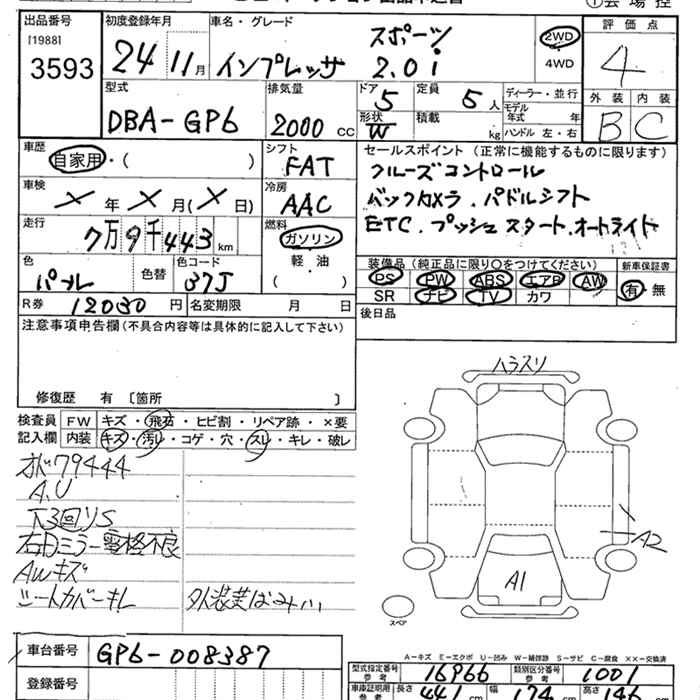 会場控
出品番号 初度登録年月 車名・グレード 評価点
[1988] 3593
24 11月 インプレッサ スポーツ 2.0i 2WD 4WD 4
型式 排気量 ドア 定員 ディーラー・並行 外装 内装
DBA-GP6 2000 CC 5 5人 モデル年式 年 B C
形状 W 積載 kg ハンドル 左・右
車歴 シフト セールスポイント (正常に機能するものに限ります)
自家用・( ) FAT クルーズコントロール
車検 冷房 バックカメラ.パドルシフト
×年×月(×日) AAC ETC.プッシュスタート.オートライト
走行 燃料
7万9千443km ガソリン
軽・油
( )
色 色替 色コード 装備品(純正品に限り〇をつけてください) 新車保証書
パール 37J PS PW ABS エアB AW 有・無
SR ナビ TV カワ
R券 12030円 名変期限 月 日 後日品
注意事項申告欄(不具合内容等は具体的に記入して下さい)
修復歴 有 〔箇所 〕
ハラスリ
検査員 FW キズ・飛石・ヒビ割・リペア跡・×要
記入欄 内装 キズ・汚レ・コゲ・穴・スレ・キレ・破レ
オド79444
A.U
下3回リS
右Dミラー電格不良
AWキズ
シートカバーキレ
外装美ばみ小
A2
A1
スペア
A-キズ E-エクボ U-凹み W-補修跡 S-サビ C-腐食 XX-交換済
車台番号 GP6-008387
登録番号
型式指定番号 参考 16966 類別区分番号 参考 1001
車庫証明用 参考 長さ 441 cm 幅 174 cm 高さ 146 cm